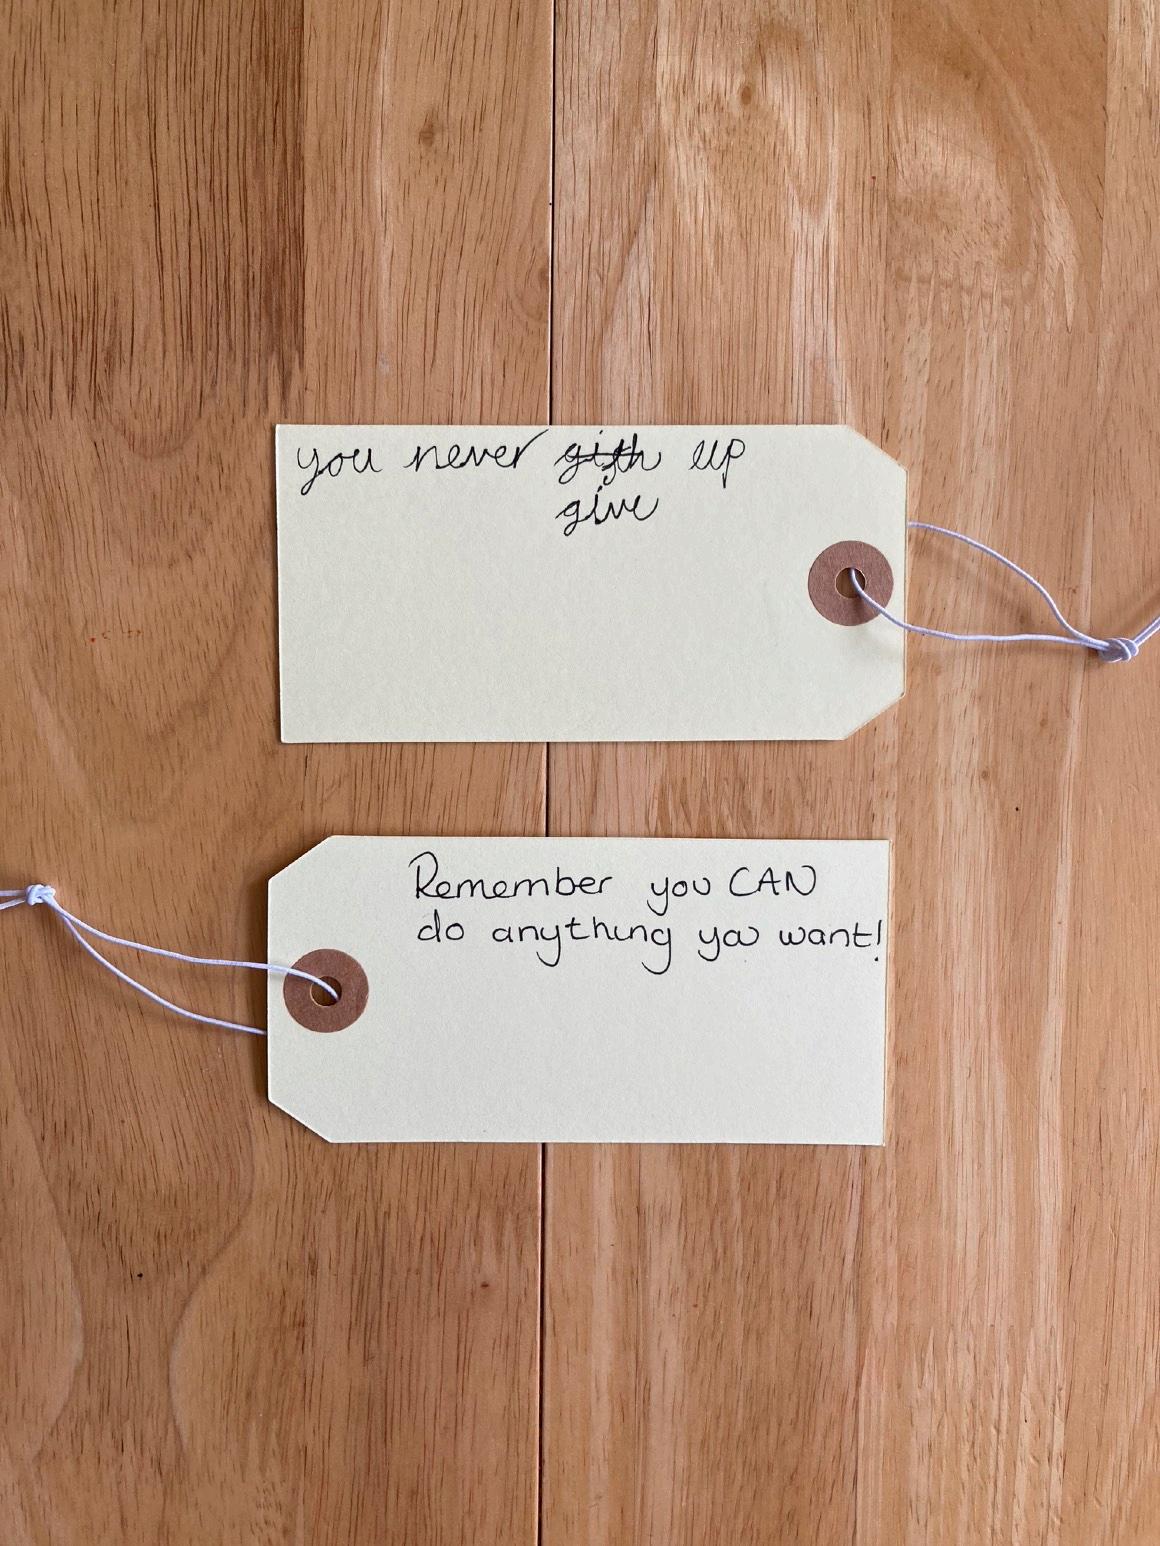 you never gith up
give
Remember you CAN
do anything you want!